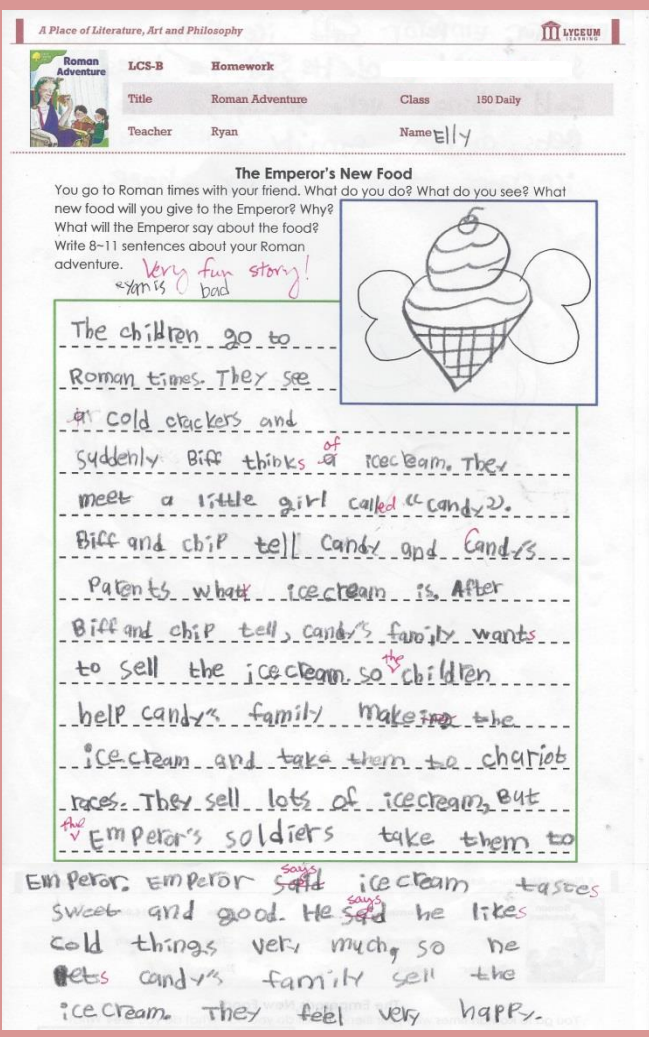 A Place of Literature, Art and Philosophy
LYCEUM
LEARNING
Roman
Adventure
LCS-B Homework
Title Roman Adventure Class 150 Daily
Teacher Ryan Name Elly
The Emperor's New Food
You go to Roman times with your friend. What do you do? What do you see? What
new food will you give to the Emperor? Why?
What will the Emperor say about the food?
Write 8~11 sentences about your Roman
adventure.
Very fun story!
ryan is bad
The children go to
Roman times. They see
cold crackers and
suddenly Biff thinks of icecream. They
meet a little girl called "candy".
Biff and chip tell candy and Candy's
Parents what icecream is. After
Biff and chip tell, candy's family wants
to sell the icecream. so the children
help candy's family make the
icecream and take them to chariot
races. They sell lots of icecream, But
the Emperor's soldiers take them to
Emperor. Emperor says icecream tastes
sweet and good. He says he likes
cold things very much, so he
lets candy's family sell the
icecream. They feel very happy.